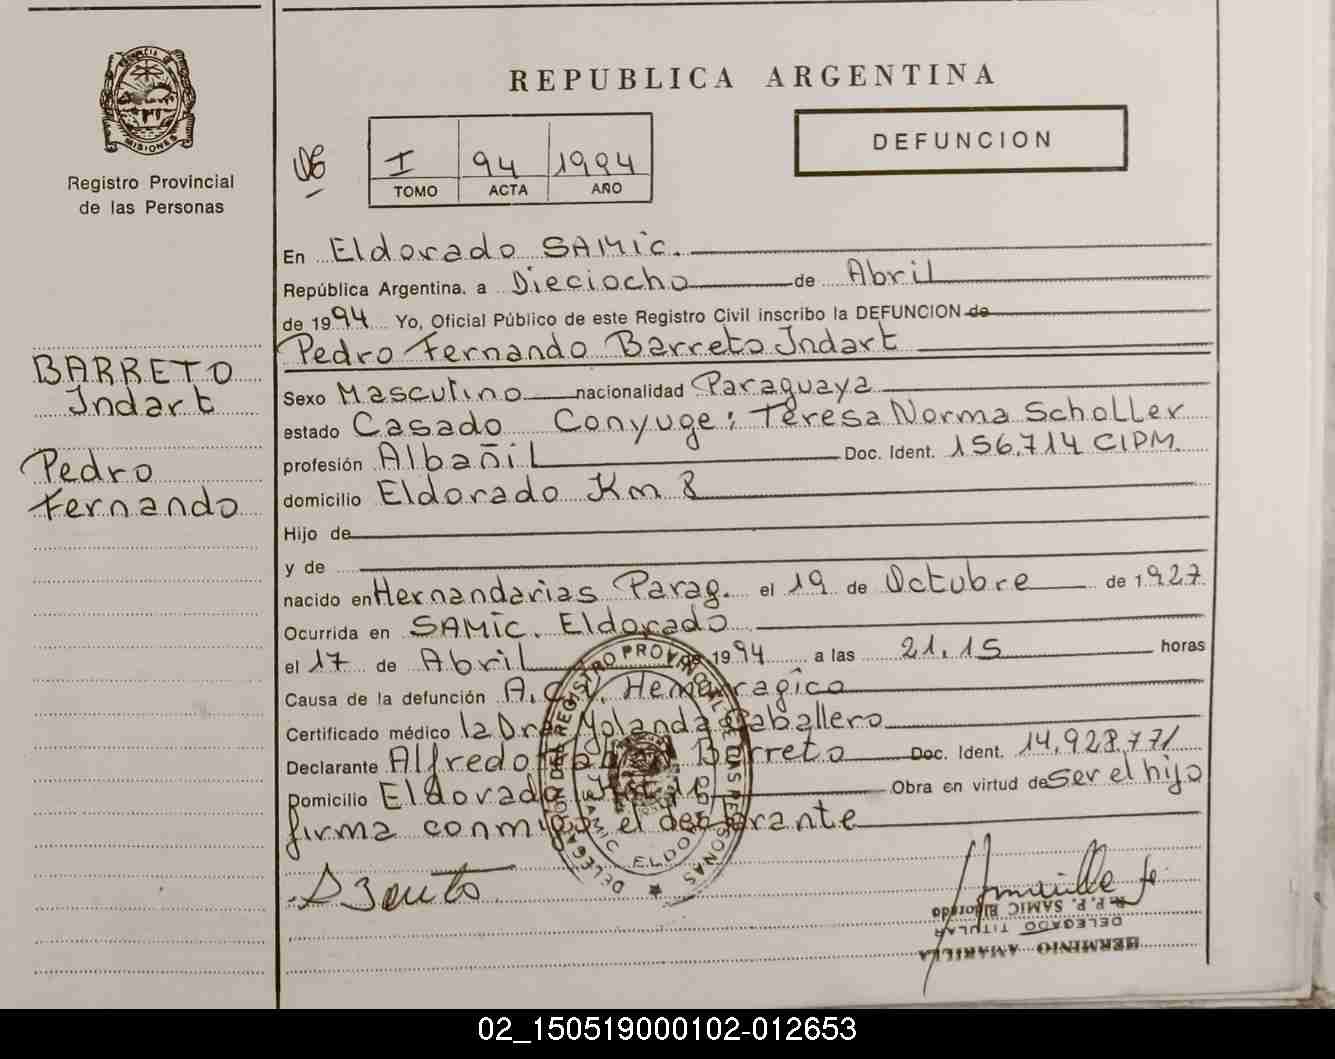 PROVINCIA DE
MISIONES
Registro Provincial
de las Personas
BARRETO
Indart
Pedro
Fernando
REPUBLICA ARGENTINA
DEFUNCION
I 94 1994
TOMO ACTA AÑO
En Eldorado SAMic.
República Argentina, a Dieciocho de Abril
de 1994 Yo, Oficial Público de este Registro Civil inscribo la DEFUNCION de
Pedro Fernando Barreto Indart
Sexo Masculino nacionalidad Paraguaya
estado Casado Conyuge: Teresa Norma Scholler
profesión Albañil Doc. Ident. 156.714 CIPM.
domicilio Eldorado Km 8
Hijo de
y de
nacido en Hernandarias Parag. el 19 de Octubre de 1.927.
Ocurrida en SAMic. Eldorado
el 17 de Abril de 1994 a las 21.15 horas
Causa de la defunción A.C.V. Hemorragico
Certificado médico la Dra Yolanda Caballero
Declarante Alfredo Barreto Doc. Ident. 14.928.771
Domicilio Eldorado Obra en virtud de Ser el hijo
firma conmigo el declarante
DELEGACION DEL REGISTRO PROVINCIAL DE LAS PERSONAS
SAMIC ELDORADO
R.P.P. SAMIC Eldorado
DELEGADO TITULAR
HERMINIO AMARILLA
02_150519000102-012653